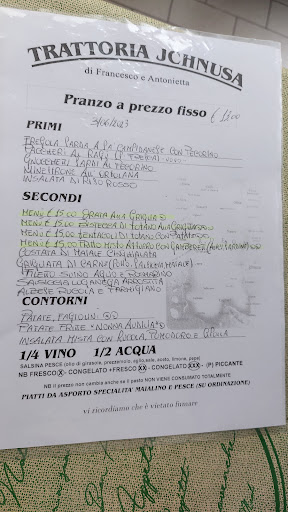 TRATTORIA JCHNUSA
di Francesco e Antonietta
Pranzo a prezzo fisso € 11.00
3/06/2023
PRIMI
FREGOLA SARDA A LA CAMPIDANESE CON PECORINO
PACCHERI AL RAGÙ
GNOCCHETTI SARDI AL PECORINO
MINESTRONE
INSALATA DI RISO ROSSO
SECONDI
MENÙ € 15.00 ORATA ALLA GRIGLIA
MENÙ € 15.00 BISTECCA DI TONNO ALLA GRIGLIA
MENÙ € 15.00 TENTACOLI DI TOTANO CON PATATE
MENÙ € 15.00 FRITTO MISTO
COSTATA DI MAIALE
GRIGLIATA DI CARNE
FILETTO SUINO AGLIO E ROSMARINO
SALSICCIA LUGANEGA ARROSTITA
ALBESE RUCOLA E PARMIGIANO
CONTORNI
PATATE, FAGIOLINI
PATATE FRITE "NONNA AURELIA"
INSALATA MISTA CON RUCOLA, POMODORO E CIPOLLA
1/4 VINO 1/2 ACQUA
SALSINA PESCE (olio di girasole, prezzemolo, aglio, sale, aceto, limone, pepe)
NB FRESCO(X)- CONGELATO +FRESCO XX - CONGELATO XXX - (P) PICCANTE
NB il prezzo non cambia anche se il pasto NON VIENE CONSUMATO TOTALMENTE
PIATTI DA ASPORTO SPECIALITA' MAIALINO E PESCE (SU ORDINAZIONE)
vi ricordiamo che è vietato fumare